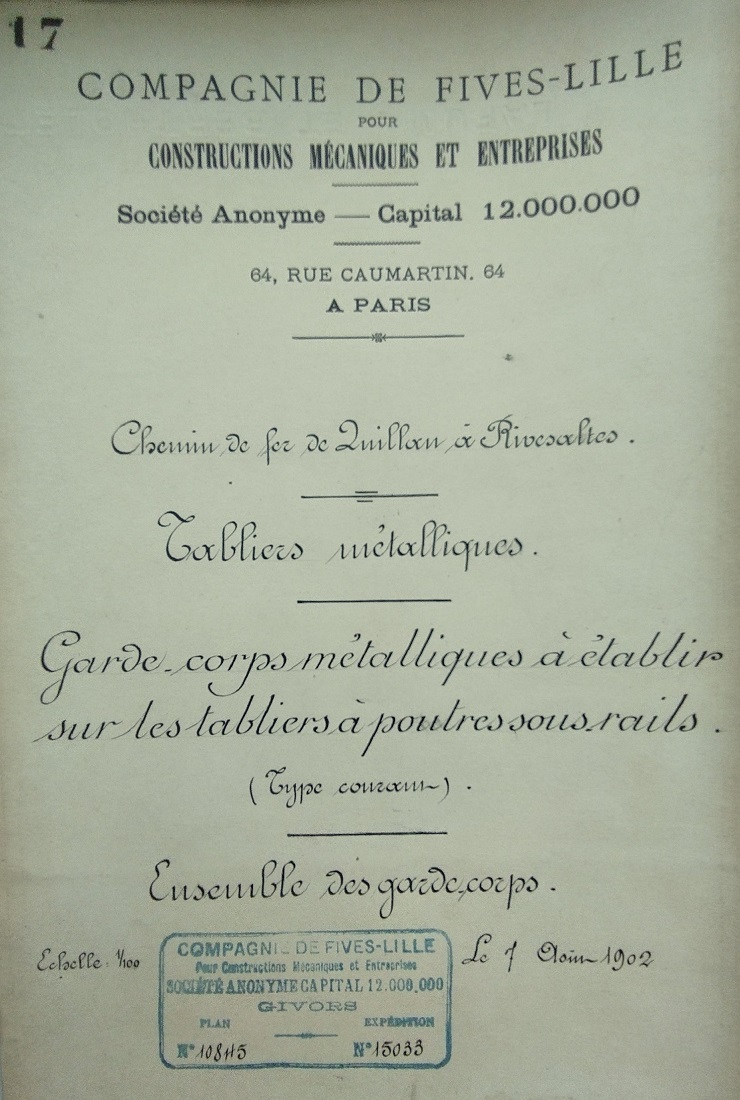 17
COMPAGNIE DE FIVES-LILLE
POUR
CONSTRUCTIONS MÉCANIQUES ET ENTREPRISES
Société Anonyme — Capital 12.000.000
64, RUE CAUMARTIN. 64
A PARIS
Chemin de fer de Quillan à Rivesaltes.
Tabliers métalliques.
Garde-corps métalliques à établir
sur les tabliers à poutres sous-rails.
(Type courant).
Ensemble des garde-corps.
Echelle: 1/100
Le 7 Août 1902
COMPAGNIE DE FIVES-LILLE
Pour Constructions Mécaniques et Entreprises
SOCIÉTÉ ANONYME CAPITAL 12.000,000
GIVORS
PLAN EXPÉDITION
N° 10845 N° 15033